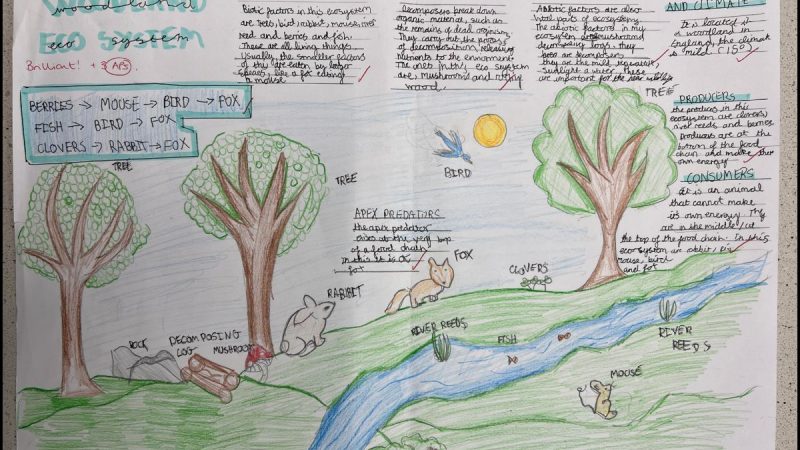 woodland
ECO SYSTEM
eco system
Brilliant! + 3 APS
Biotic factors in this ecosystem
are trees, bird, rabbit, mouse, river
reed and berries and fish
These are all living things.
Usually, the smaller factors
of they are eaten by larger
species, like a fox eating
a mouse
Decomposers break down
organic material, such as
the remains of dead organisms,
They carry out the process
of decomposition, releasing
nutrients to the environment
The in this eco system
are, mushrooms and rotting
wood.
Abiotic factors are also
vital parts of ecosystems
The abiotic factors in my
ecosystem
decomposing logs, they
are decomposers
they are the mild
sunlight a water. These
are important for the
AND CLIMATE
It is located
in woodland in
England, the climate
is mild (15°)
BERRIES → MOUSE → BIRD → FOX
FISH → BIRD → FOX
CLOVERS → RABBIT → FOX
PRODUCERS
the producers in this
ecosystem are clovers,
river reeds and berries
Producers are at the
bottom of the food
chain and make their
own energy
CONSUMERS
It is an animal
that cannot make
its own energy. They
are in the middle / at
the top of the food chain. In this
ecosystem are rabbit, fis
mouse, bird
and fox
TREE
TREE
TREE
BIRD
APEX PREDATORS
the apex predator
at the very top
of a food chain
in this it is a
fox
FOX
RABBIT
CLOVERS
ROCK
DECOMPOSING
LOG
MUSHROOM
RIVER REEDS
FISH
RIVER
REEDS
MOUSE